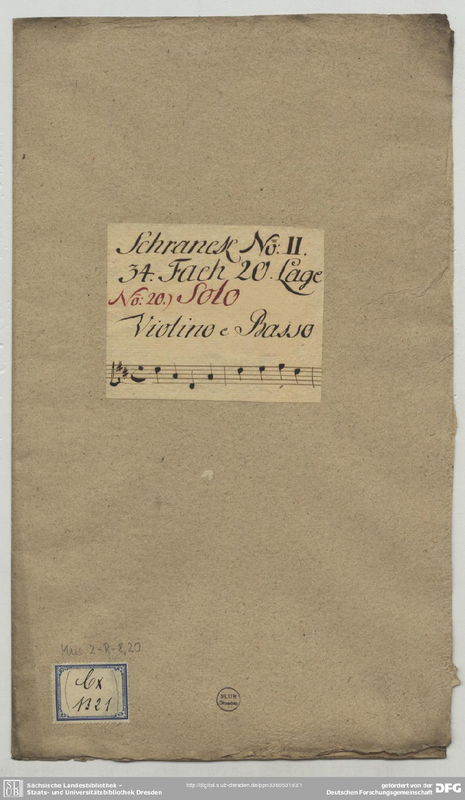 Schranck No: II.
34. Fach 20. Lage
No: 20.) Solo
Violino e Basso
Mus. 2-R-8,20
Cx
1321
SLUB
Dresden
Sächsische Landesbibliothek –
Staats- und Universitätsbibliothek Dresden
gefördert von der
Deutschen Forschungsgemeinschaft
DFG